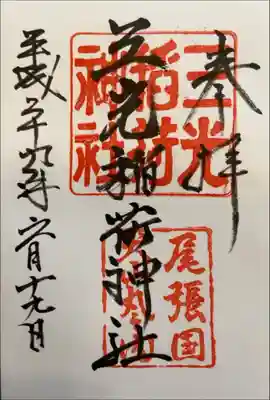 奉拝
三光稲荷神社
平成二十九年六月十九日
三光
稲荷
神社
尾張国